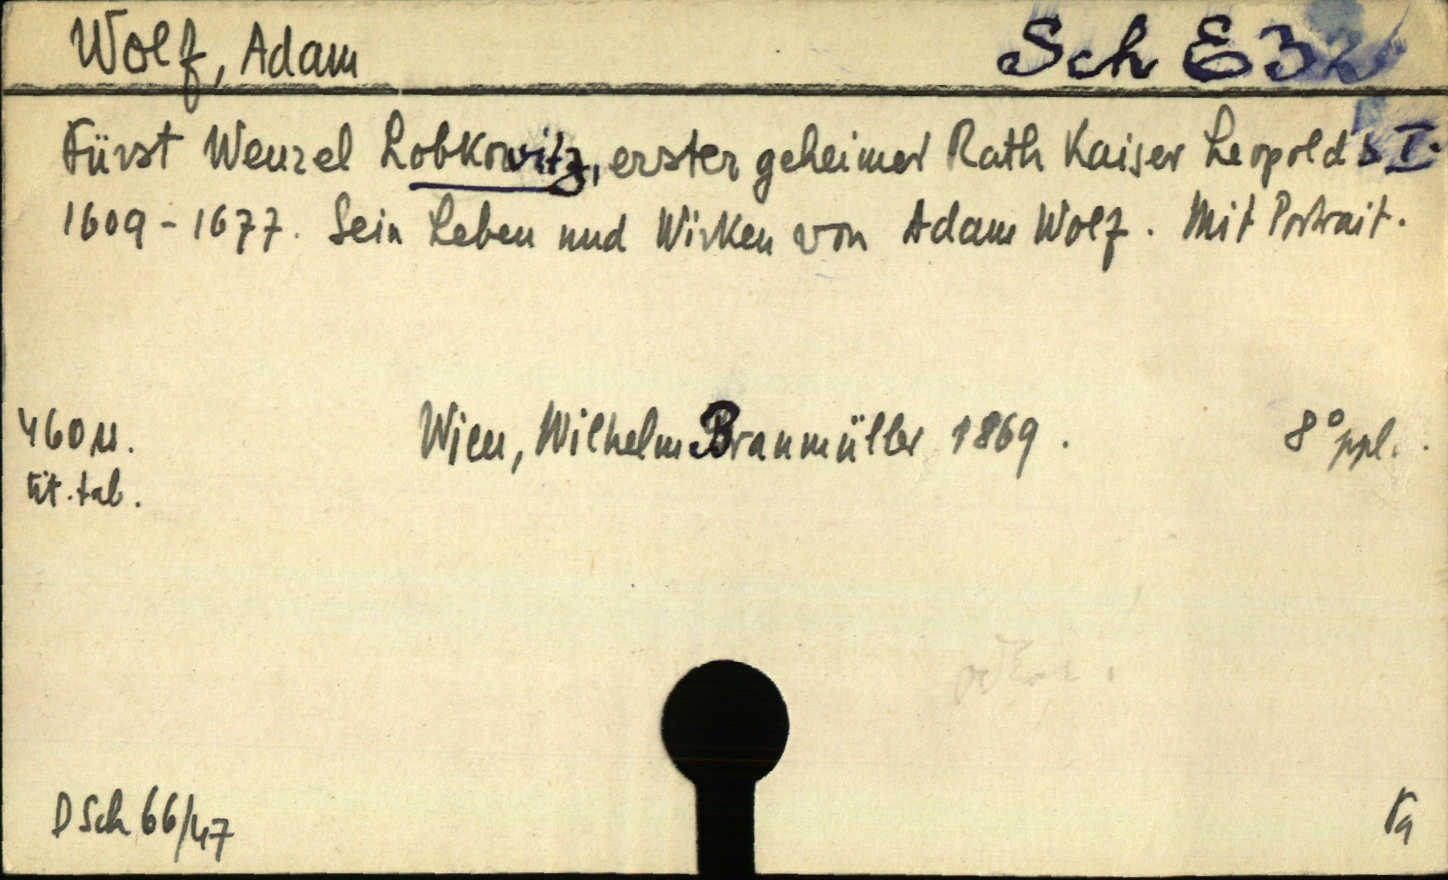 Wolf, Adam
Sch E 32
Fürst Wenzel Lobkowitz, erster geheimer Rath Kaiser Leopold's I.
1609-1677. Sein Leben und Wirken von Adam Wolf. Mit Portrait.
460 u. Wien, Wilhelm Braumüller 1869. 8° ppl.
tit. tab.
D Sch 66/47